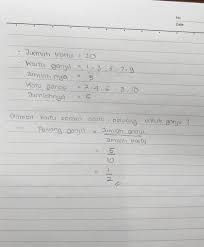 No
Date
- Jumlah kartu = 10
Kartu ganjil = 1 . 3 . 5 . 7 . 9
Jumlahnya = 5
Kartu genap = 2 . 4 . 6 . 8 . 10
Jumlahnya = 5
kartu secara acak, peluang untuk ganjil ?
Peluang ganjil = Jumlah ganjil
Jumlah kartu
= 5
10
= 1
2